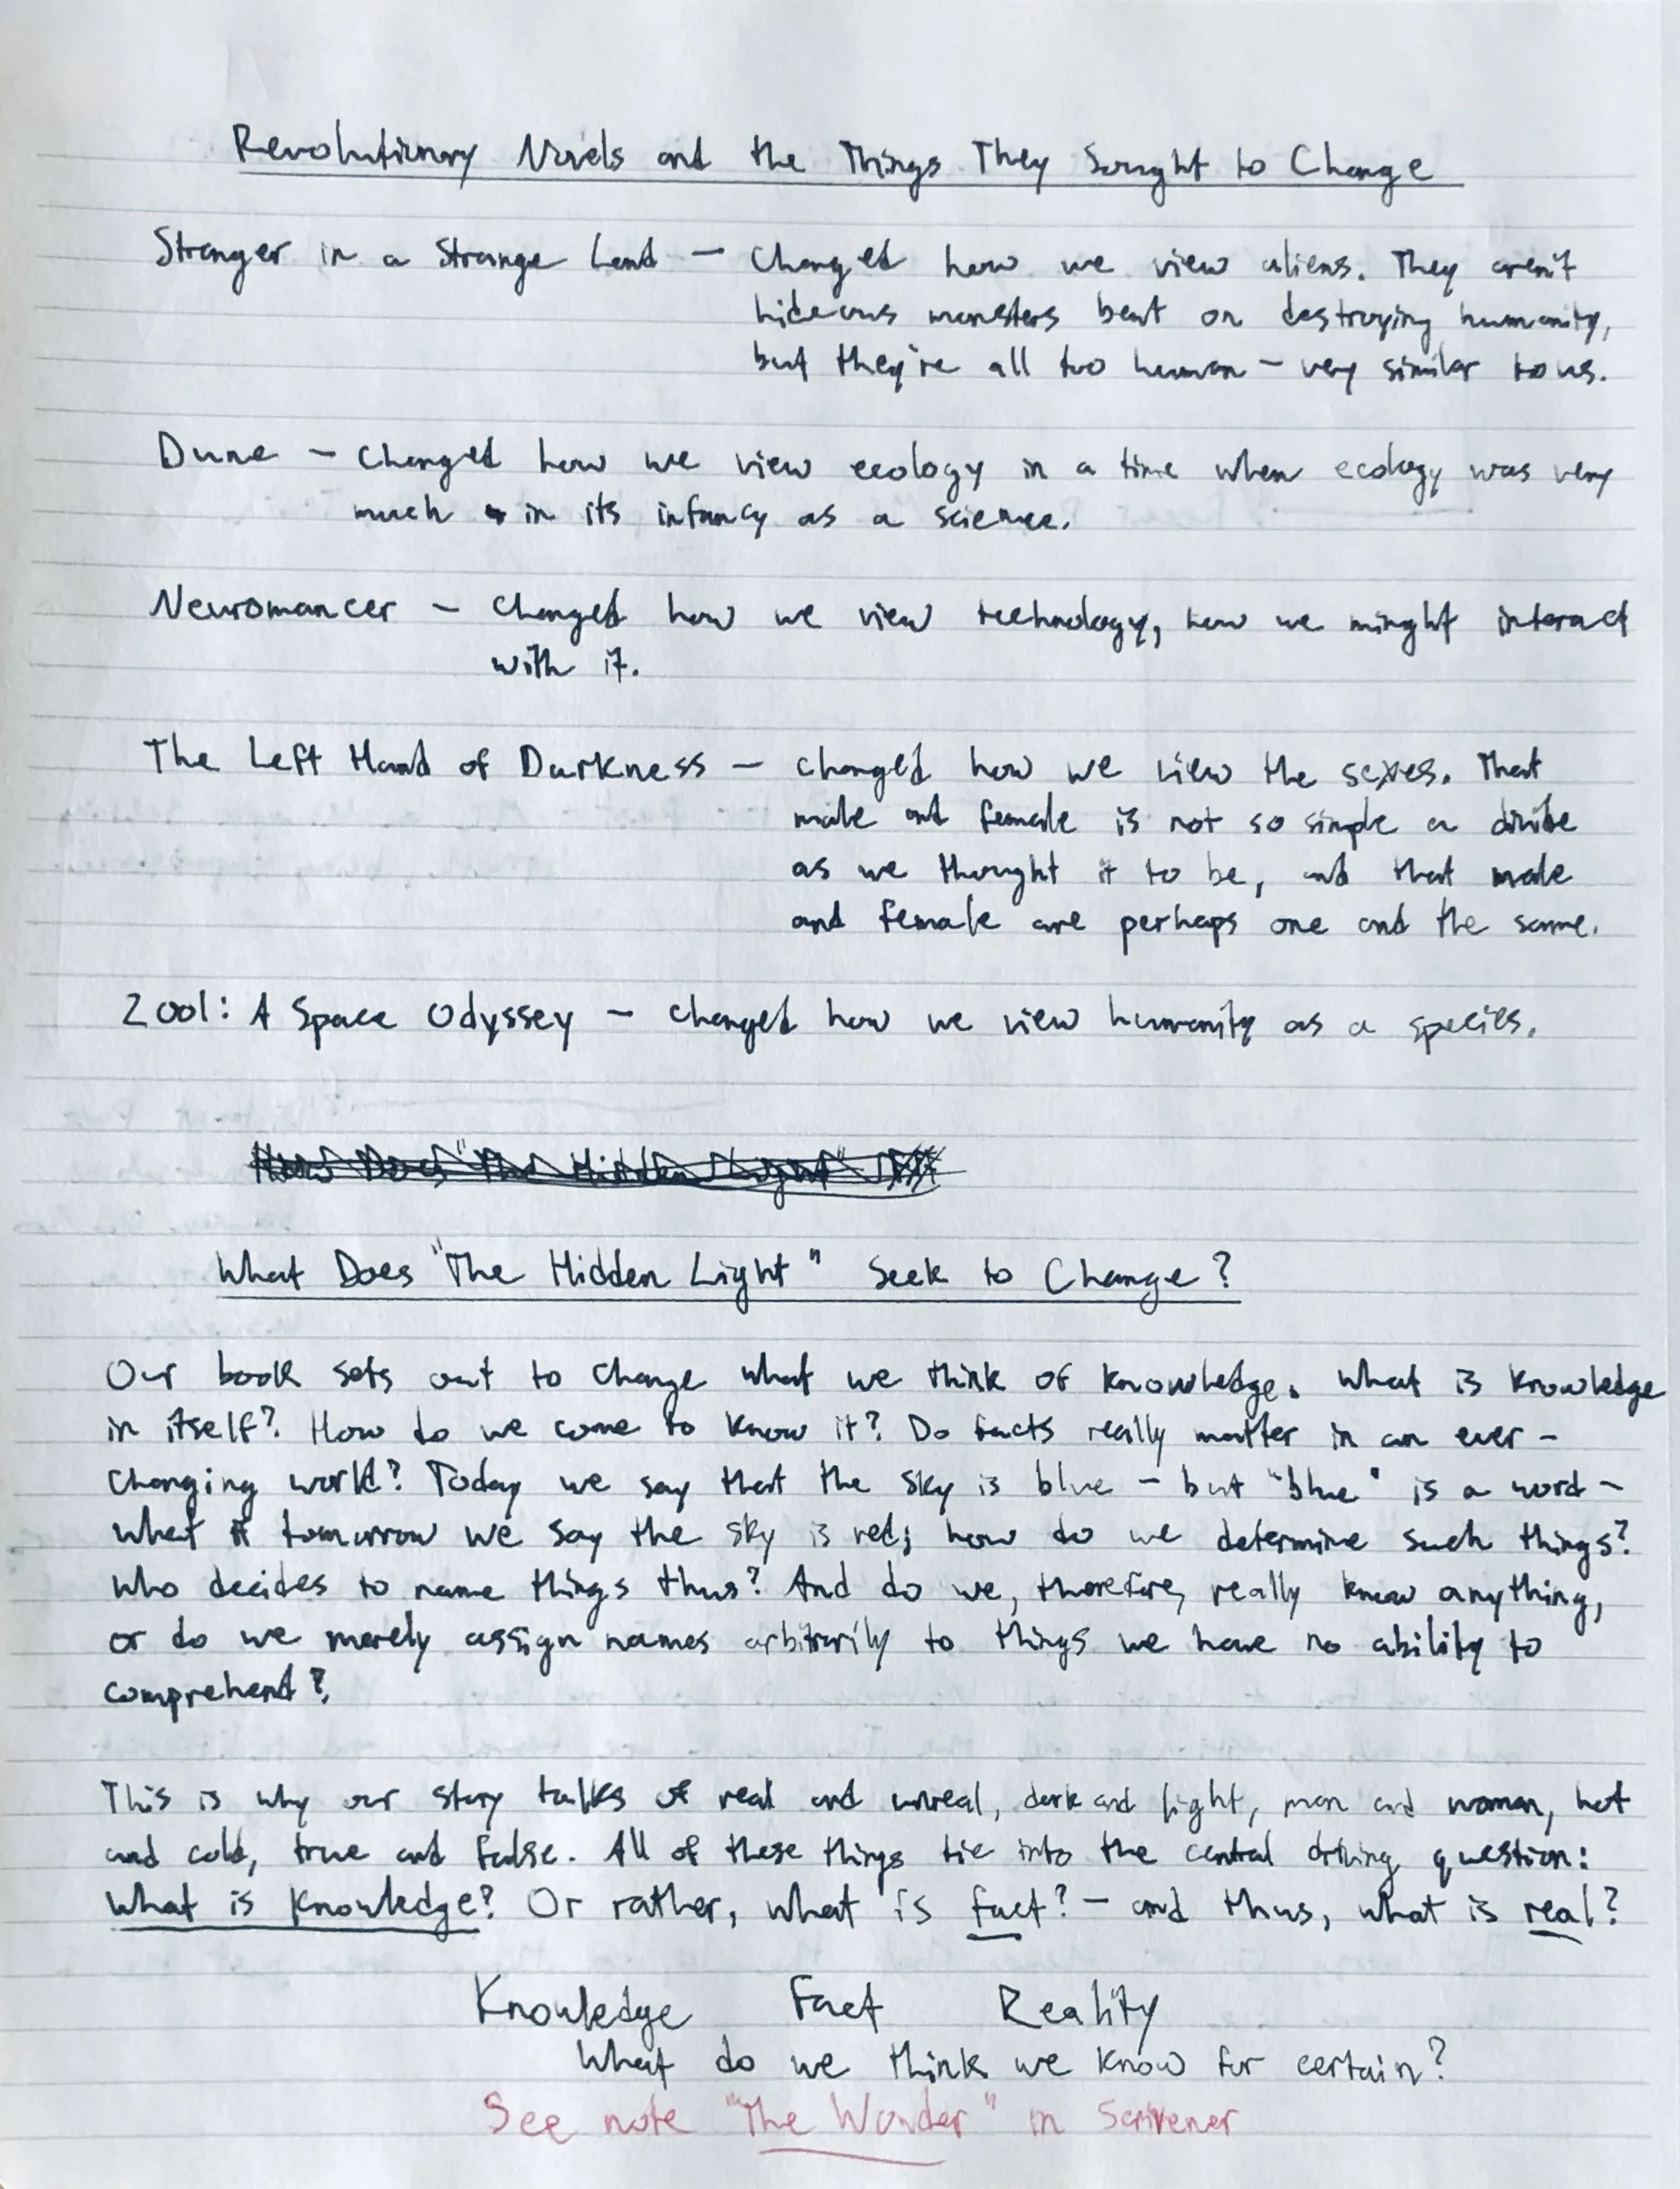 Revolutionary Novels and the Things They Sought to Change
Stranger in a Strange Land — Changed how we view aliens. They aren't
hideous monsters bent on destroying humanity,
but they're all too human — very similar to us.
Dune — Changed how we view ecology in a time when ecology was very
much in its infancy as a science.
Neuromancer — Changed how we view technology, how we minght interact
with it.
The Left Hand of Darkness — changed how we view the sexes. That
male and female is not so simple a divide
as we thought it to be, and that male
and female are perhaps one and the same.
2001: A Space Odyssey — changed how we view humanity as a species.
How Does "The Hidden Light"
What Does "The Hidden Light" Seek to Change?
Our book sets out to change what we think of knowledge. What is knowledge
in itself? How do we come to know it? Do facts really matter in an ever-
changing world? Today we say that the sky is blue — but "blue" is a word —
what if tomorrow we say the sky is red; how do we determine such things?
Who decides to name things thus? And do we, therefore, really know anything,
or do we merely assign names arbitrarily to things we have no ability to
comprehend?
This is why our story talks of real and unreal, dark and light, man and woman, hot
and cold, true and false. All of these things tie into the central driving question:
What is knowledge? Or rather, what is fact? — and thus, what is real?
Knowledge Fact Reality
What do we think we know for certain?
See note "The Wonder" in Scrivener